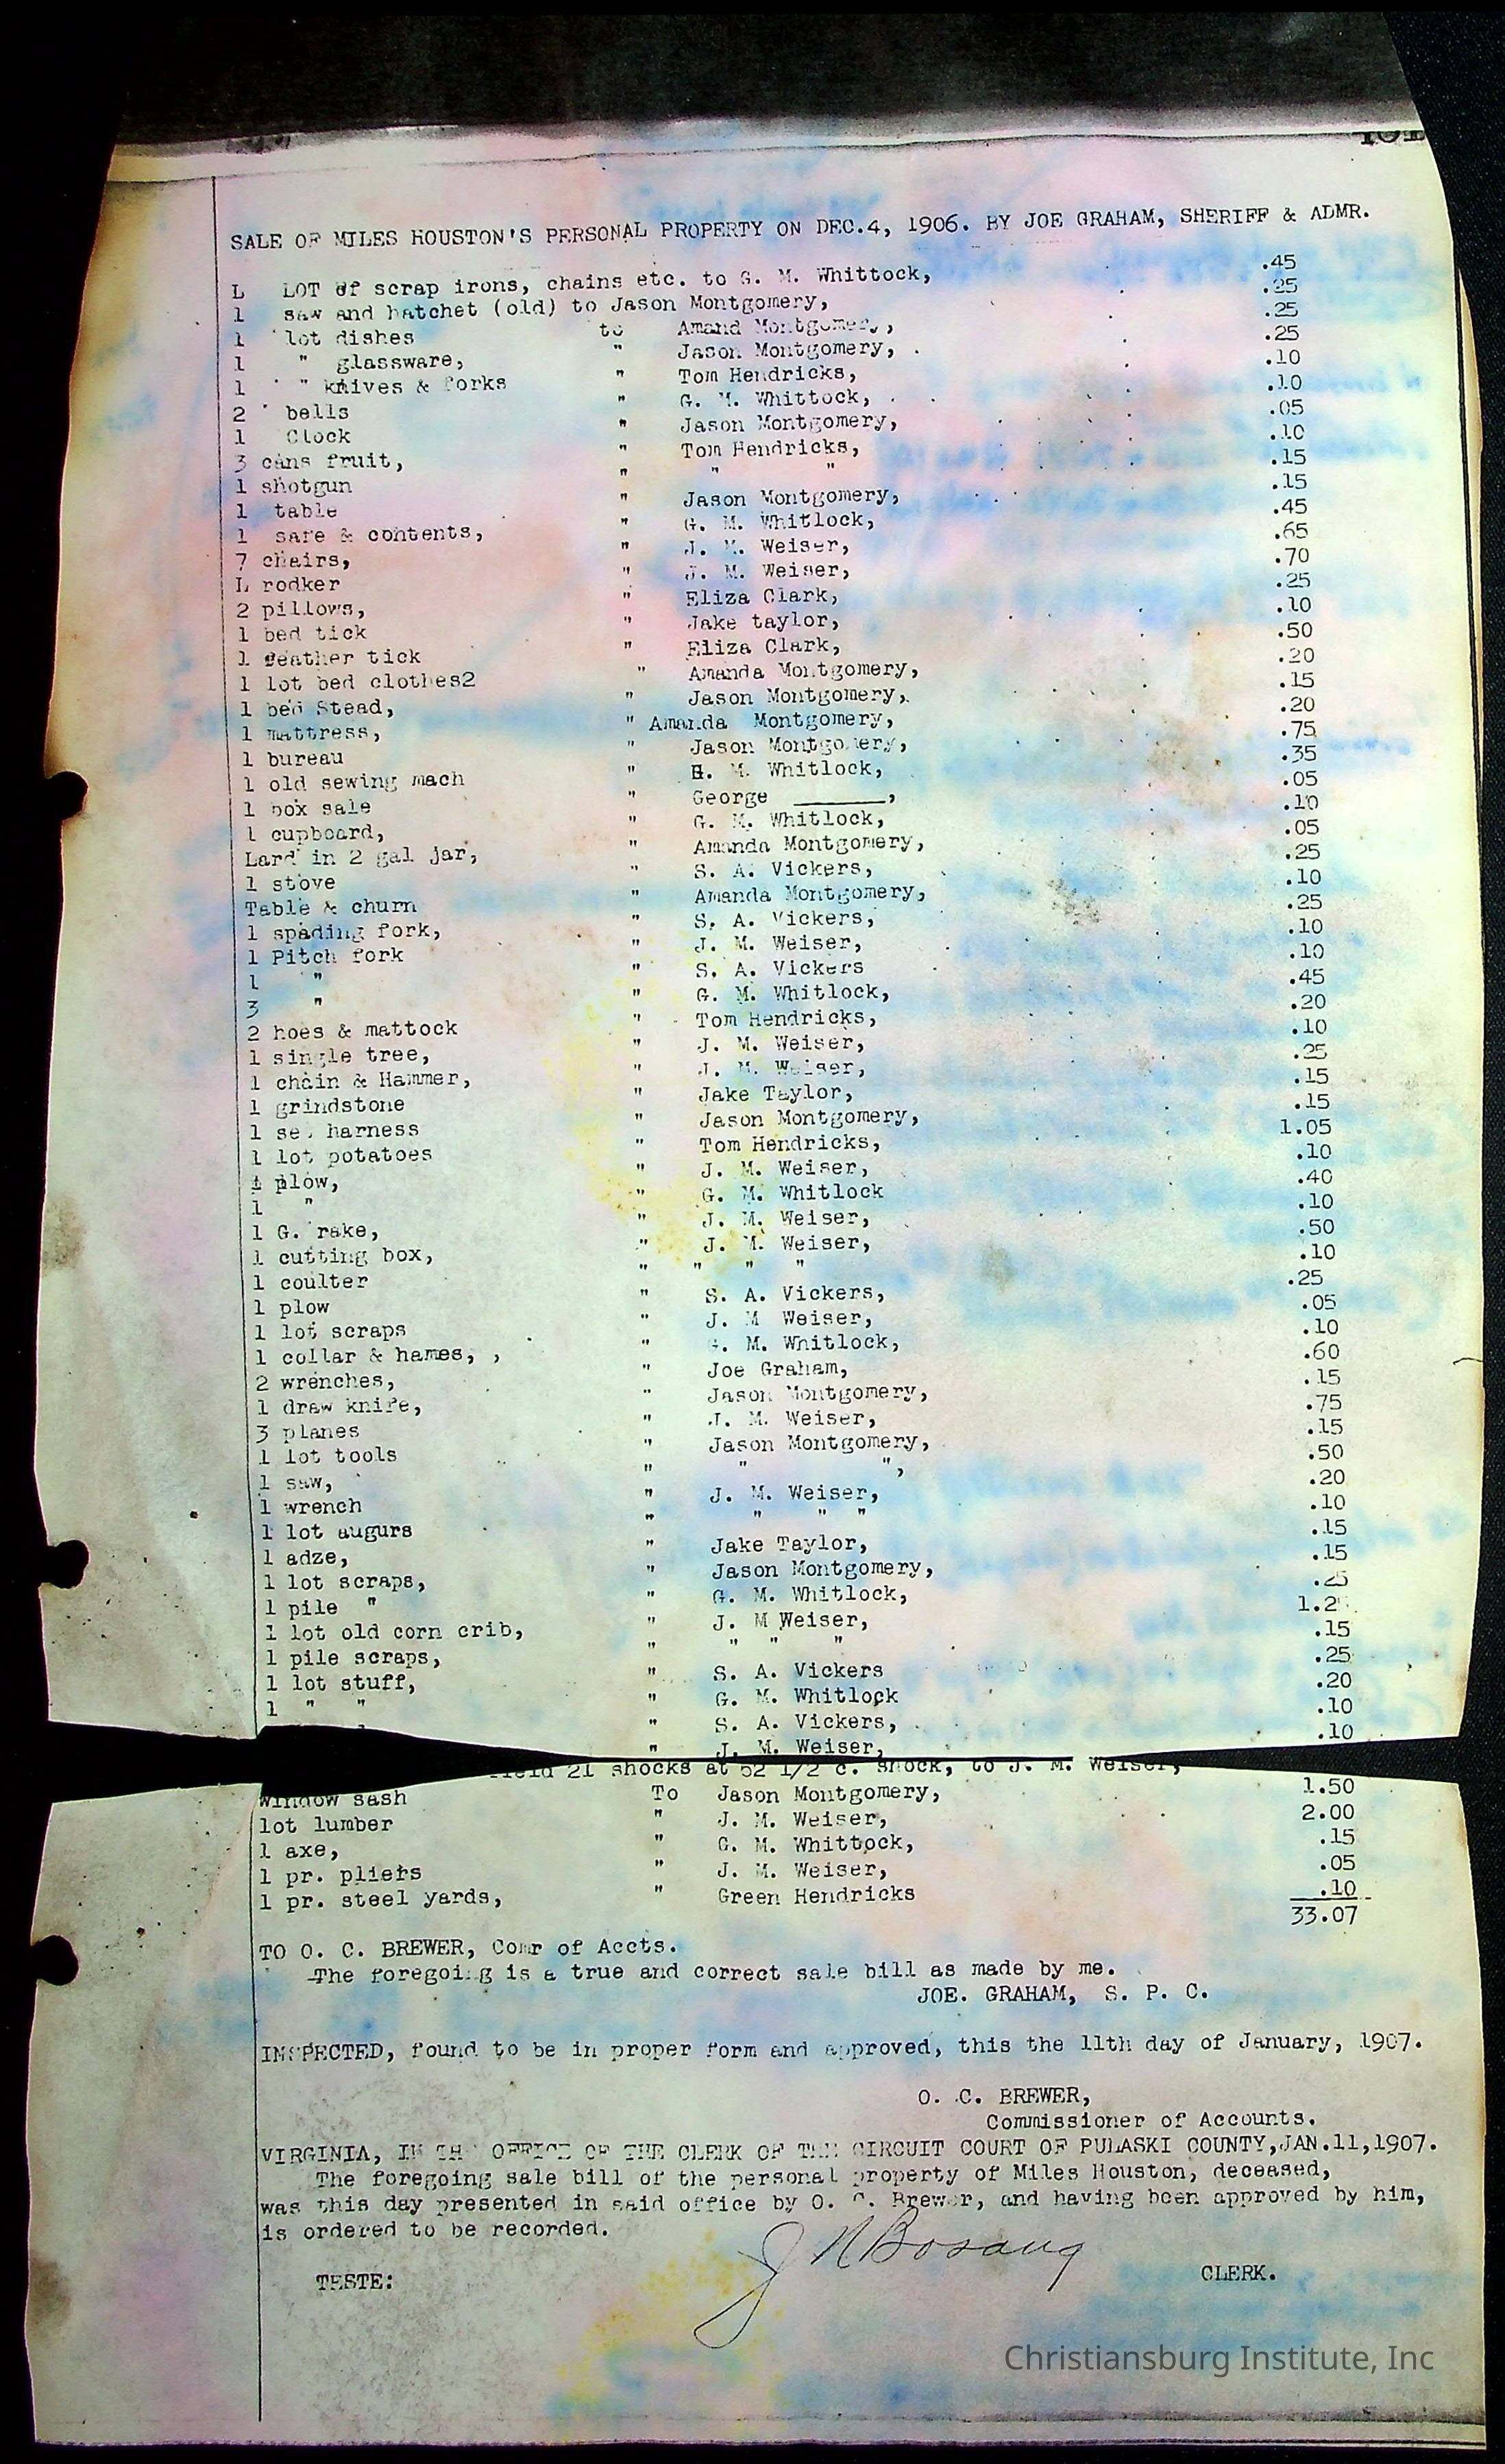 SALE OF MILES HOUSTON'S PERSONAL PROPERTY ON DEC.4, 1906. BY JOE GRAHAM, SHERIFF & ADMR.
L LOT of scrap irons, chains etc. to G. M. Whittock, .45
1 saw and hatchet (old) to Jason Montgomery, .25
1 lot dishes to Amand Montgomery, .25
1 " glassware, " Jason Montgomery, .25
1 " knives & forks " Tom Hendricks, .10
2 bells " G. M. Whittock, .10
1 Clock " Jason Montgomery, .05
3 cans fruit, " Tom Hendricks, .10
1 shotgun " " " .15
1 table " Jason Montgomery, .15
1 safe & contents, " G. M. Whitlock, .45
7 chairs, " J. M. Weiser, .65
L rodker " J. M. Weiser, .70
2 pillows, " Eliza Clark, .25
1 bed tick " Jake taylor, .10
1 feather tick " Eliza Clark, .50
1 lot bed clothes2 " Amanda Montgomery, .20
1 bed Stead, " Jason Montgomery, .15
1 mattress, " Amanda Montgomery, .20
1 bureau " Jason Montgomery, .75
1 old sewing mach " H. M. Whitlock, .35
1 box sale " George ______, .05
1 cupboard, " G. M. Whitlock, .10
Lard in 2 gal jar, " Amanda Montgomery, .05
1 stove " S. A. Vickers, .25
Table & churn " Amanda Montgomery, .10
1 spading fork, " S. A. Vickers, .25
1 Pitch fork " J. M. Weiser, .10
1 " " S. A. Vickers .10
3 " " G. M. Whitlock, .45
2 hoes & mattock " Tom Hendricks, .20
1 single tree, " J. M. Weiser, .10
1 chain & Hammer, " J. M. Weiser, .25
1 grindstone " Jake Taylor, .15
1 set harness " Jason Montgomery, .15
1 lot potatoes " Tom Hendricks, 1.05
1 plow, " J. M. Weiser, .10
1 " " G. M. Whitlock .40
1 G. rake, " J. M. Weiser, .10
1 cutting box, " J. M. Weiser, .50
1 coulter " " " " .10
1 plow " S. A. Vickers, .25
1 lot scraps " J. M Weiser, .05
1 collar & hames, , " G. M. Whitlock, .10
2 wrenches, " Joe Graham, .60
1 draw knife, " Jason Montgomery, .15
3 planes " J. M. Weiser, .75
1 lot tools " Jason Montgomery, .15
1 saw, " " ", .50
1 wrench " J. M. Weiser, .20
1 lot augurs " " " " .10
1 adze, " Jake Taylor, .15
1 lot scraps, " Jason Montgomery, .15
1 pile " " G. M. Whitlock, .25
1 lot old corn crib, " J. M Weiser, 1.2
1 pile scraps, " " " " .15
1 lot stuff, " S. A. Vickers .25
1 " " " G. M. Whitlock .20
" S. A. Vickers, .10
" J. M. Weiser, .10
field 21 shocks at 52 1/2 c. shock, to J. M. Weiser,
Window sash To Jason Montgomery, 1.50
lot lumber " J. M. Weiser, 2.00
1 axe, " G. M. Whittock, .15
1 pr. pliers " J. M. Weiser, .05
1 pr. steel yards, " Green Hendricks .10
33.07
TO O. C. BREWER, Comr of Accts.
The foregoing is a true and correct sale bill as made by me.
JOE. GRAHAM, S. P. C.
INSPECTED, found to be in proper form and approved, this the 11th day of January, 1907.
O. C. BREWER,
Commissioner of Accounts.
VIRGINIA, IN THE OFFICE OF THE CLERK OF THE CIRCUIT COURT OF PULASKI COUNTY,JAN.11,1907.
The foregoing sale bill of the personal property of Miles Houston, deceased,
was this day presented in said office by O. C. Brewer, and having been approved by him,
is ordered to be recorded.
J N Bosang
TESTE: CLERK.
Christiansburg Institute, Inc